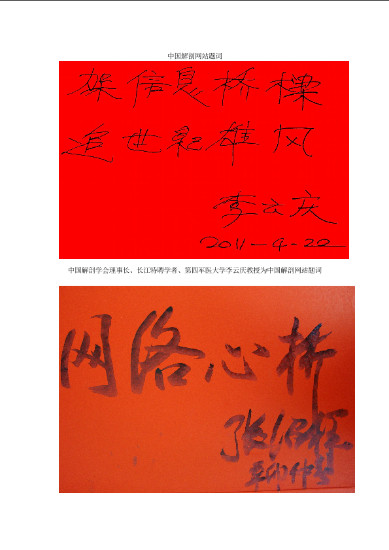 中国解剖网站题词
架信息桥樑
追世纪雄风
李云庆
2011-4-22
中国解剖学会理事长、长江特聘学者、第四军医大学李云庆教授为中国解剖网站题词
网络心桥
张绍祥